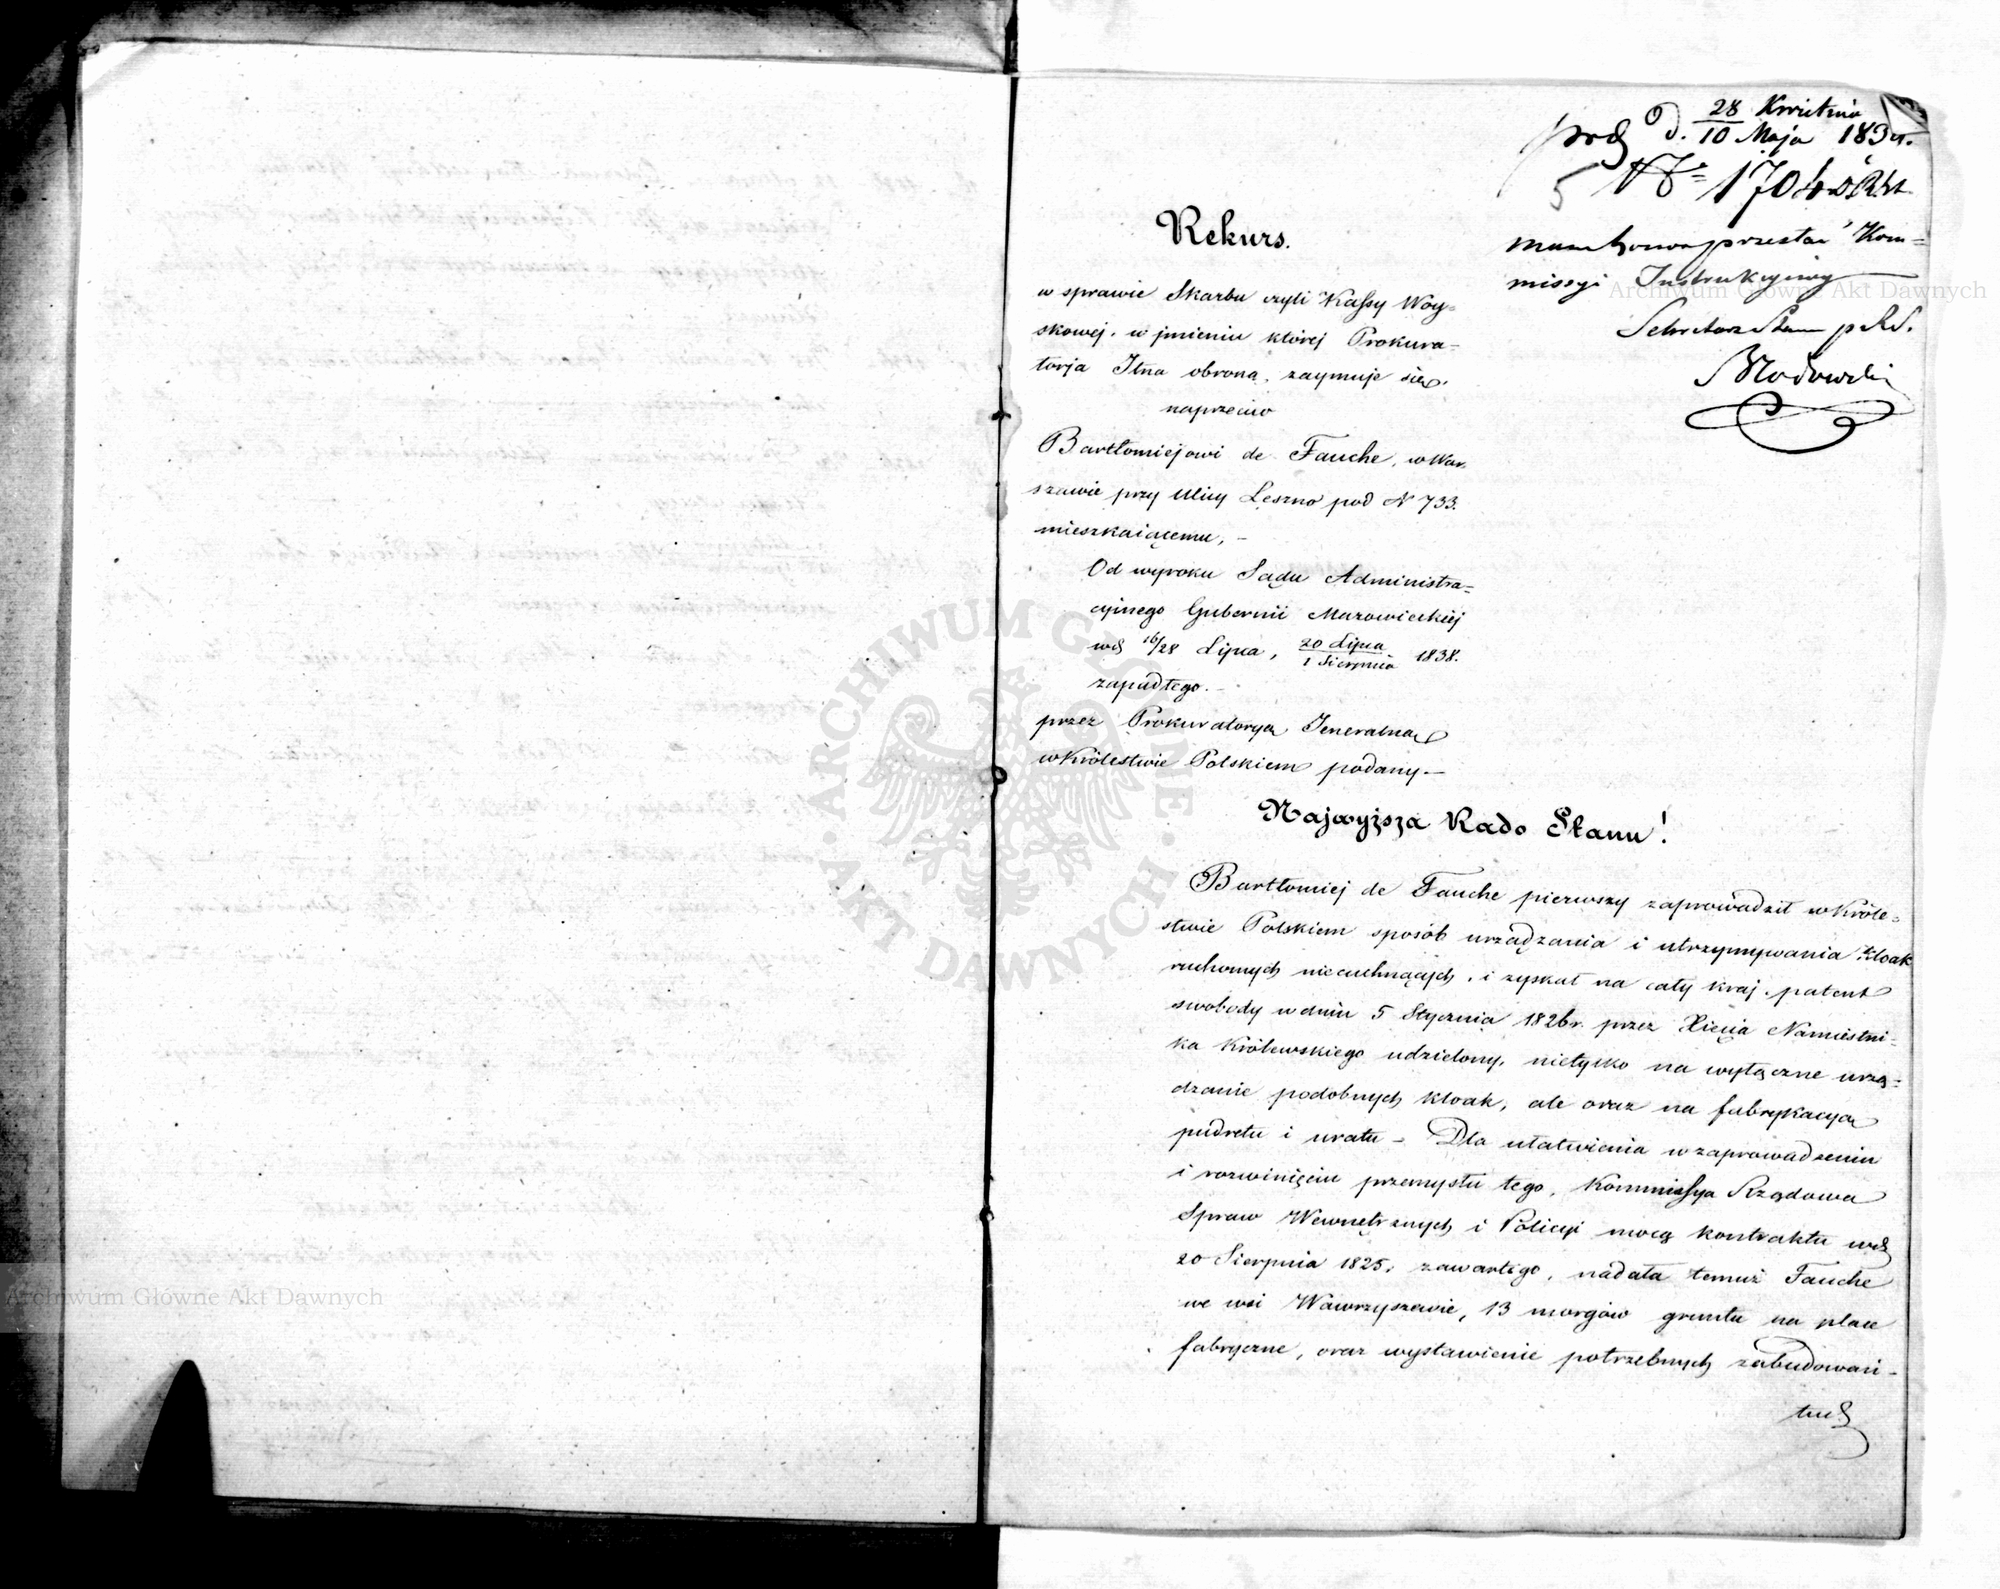 prd d. 28 Kwietnia
10 Maja 1839.
5 N= 1704
przesłać Kom=
missyi Instrukcyiney
Sekretarz Stanu p. R. S.
Rekurs.
w sprawie Skarbu czyli Kassy Woy=
skowej, w jmieniu której Prokura=
torja Jlna obroną, zaymuje się,
naprzeciw
Bartłomiejowi de Fauche, w War
szawie przy Ulicy Leszno pod N 733.
mieszkaiącemu, –
Od wyroku Sądu Administra=
cyjnego Gubernii Mazowieckiéj
wd 16/28 Lipca, 20 Lipca
1 Sierpnia 1838.
zapadłego. –
przez Prokuratoryą Jeneralną
w Królestwie Polskiem podany. –
Najwyższa Rado Stanu!
Bartłomiej de Fauche pierwszy zaprowadził w Króle=
stwie Polskiem sposób urządzania i utrzymywania kloak
ruchomych niecuchnących, i zyskał na cały kraj, patent
swobody w dniu 5 Stycznia 1826r. przez Xięcia Namiestni=
ka Królewskiego udzielony, nietylko na wyłączne urzą=
dzanie podobnych kloak, ale oraz na fabrykacyą
pudretu i uratu – Dla ułatwienia w zaprowadzeniu
i rozwinięciu przemysłu tego, Kommissya Rządowa
Spraw Wewnętrznych i Policyi mocą kontraktu wd
20 Sierpnia 1825r. zawartego, nadała temuż Fauche
we wsi Wawrzyszewie, 13 morgów gruntu na place
fabryczne, oraz wystawienie potrzebnych zabudowań –
tud
ARCHIWUM GŁÓWNE AKT DAWNYCH
Archiwum Główne Akt Dawnych
Archiwum Główne Akt Dawnych